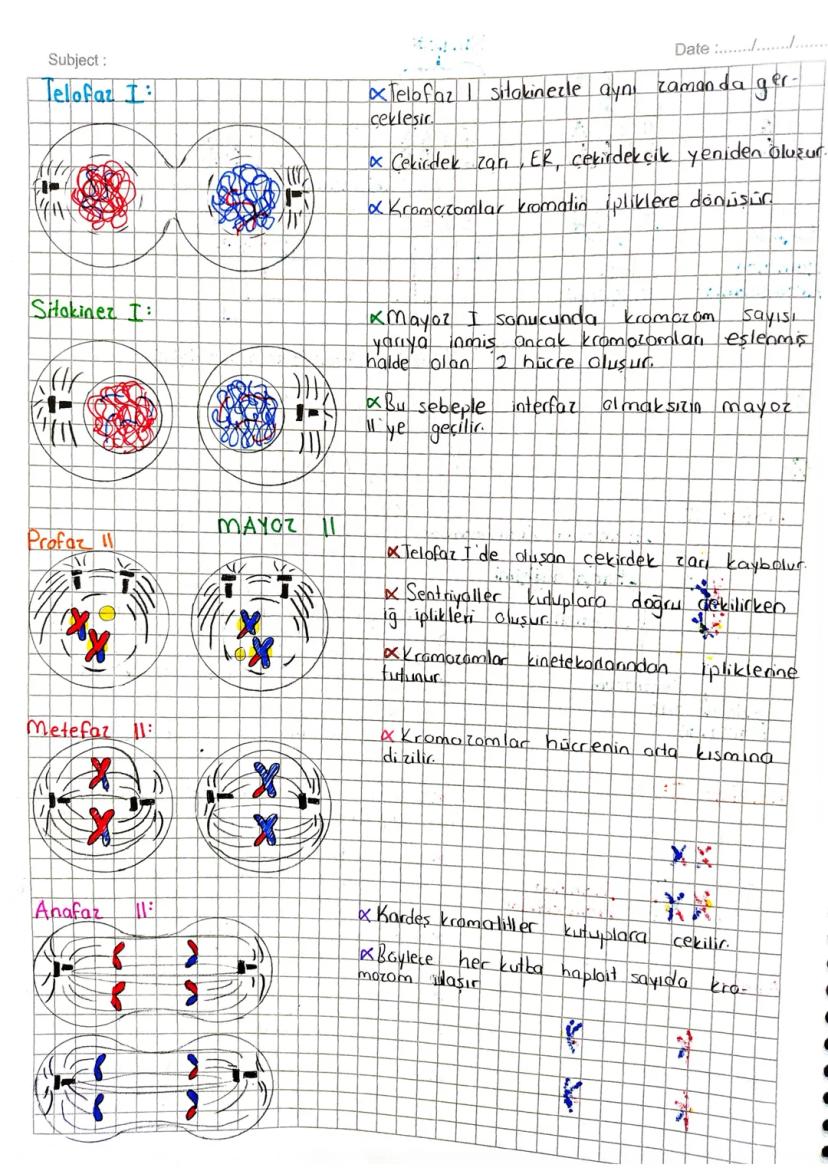 Subject :
Date :....../....../......
Telofaz I:
∝Telofaz I sitokinezle aynı zamanda ger-
çekleşir.
∝ Çekirdek zarı, ER, çekirdekçik yeniden oluşur.
∝ Kromozomlar kromatin ipliklere dönüşür.
Sitokinez I:
∝Mayoz I sonucunda kromozom sayısı
yarıya inmiş ancak kromozomları eşlenmiş
halde olan 2 hücre oluşur.
∝Bu sebeple interfaz olmaksızın mayoz
II'ye geçilir.
MAYOZ II
Profaz II
∝Telofaz I'de oluşan çekirdek zarı kaybolur.
∝ Sentriyoller kutuplara doğru çekilirken
iğ iplikleri oluşur.
∝Kromozomlar kinetekorlarından ipliklerine
tutunur.
Metefaz II:
∝ Kromozomlar hücrenin orta kısmına
dizilir.
Anafaz II:
∝ Kardeş kromatitler kutuplara çekilir.
∝Böylece her kutba haploit sayıda kro-
mozom ulaşır